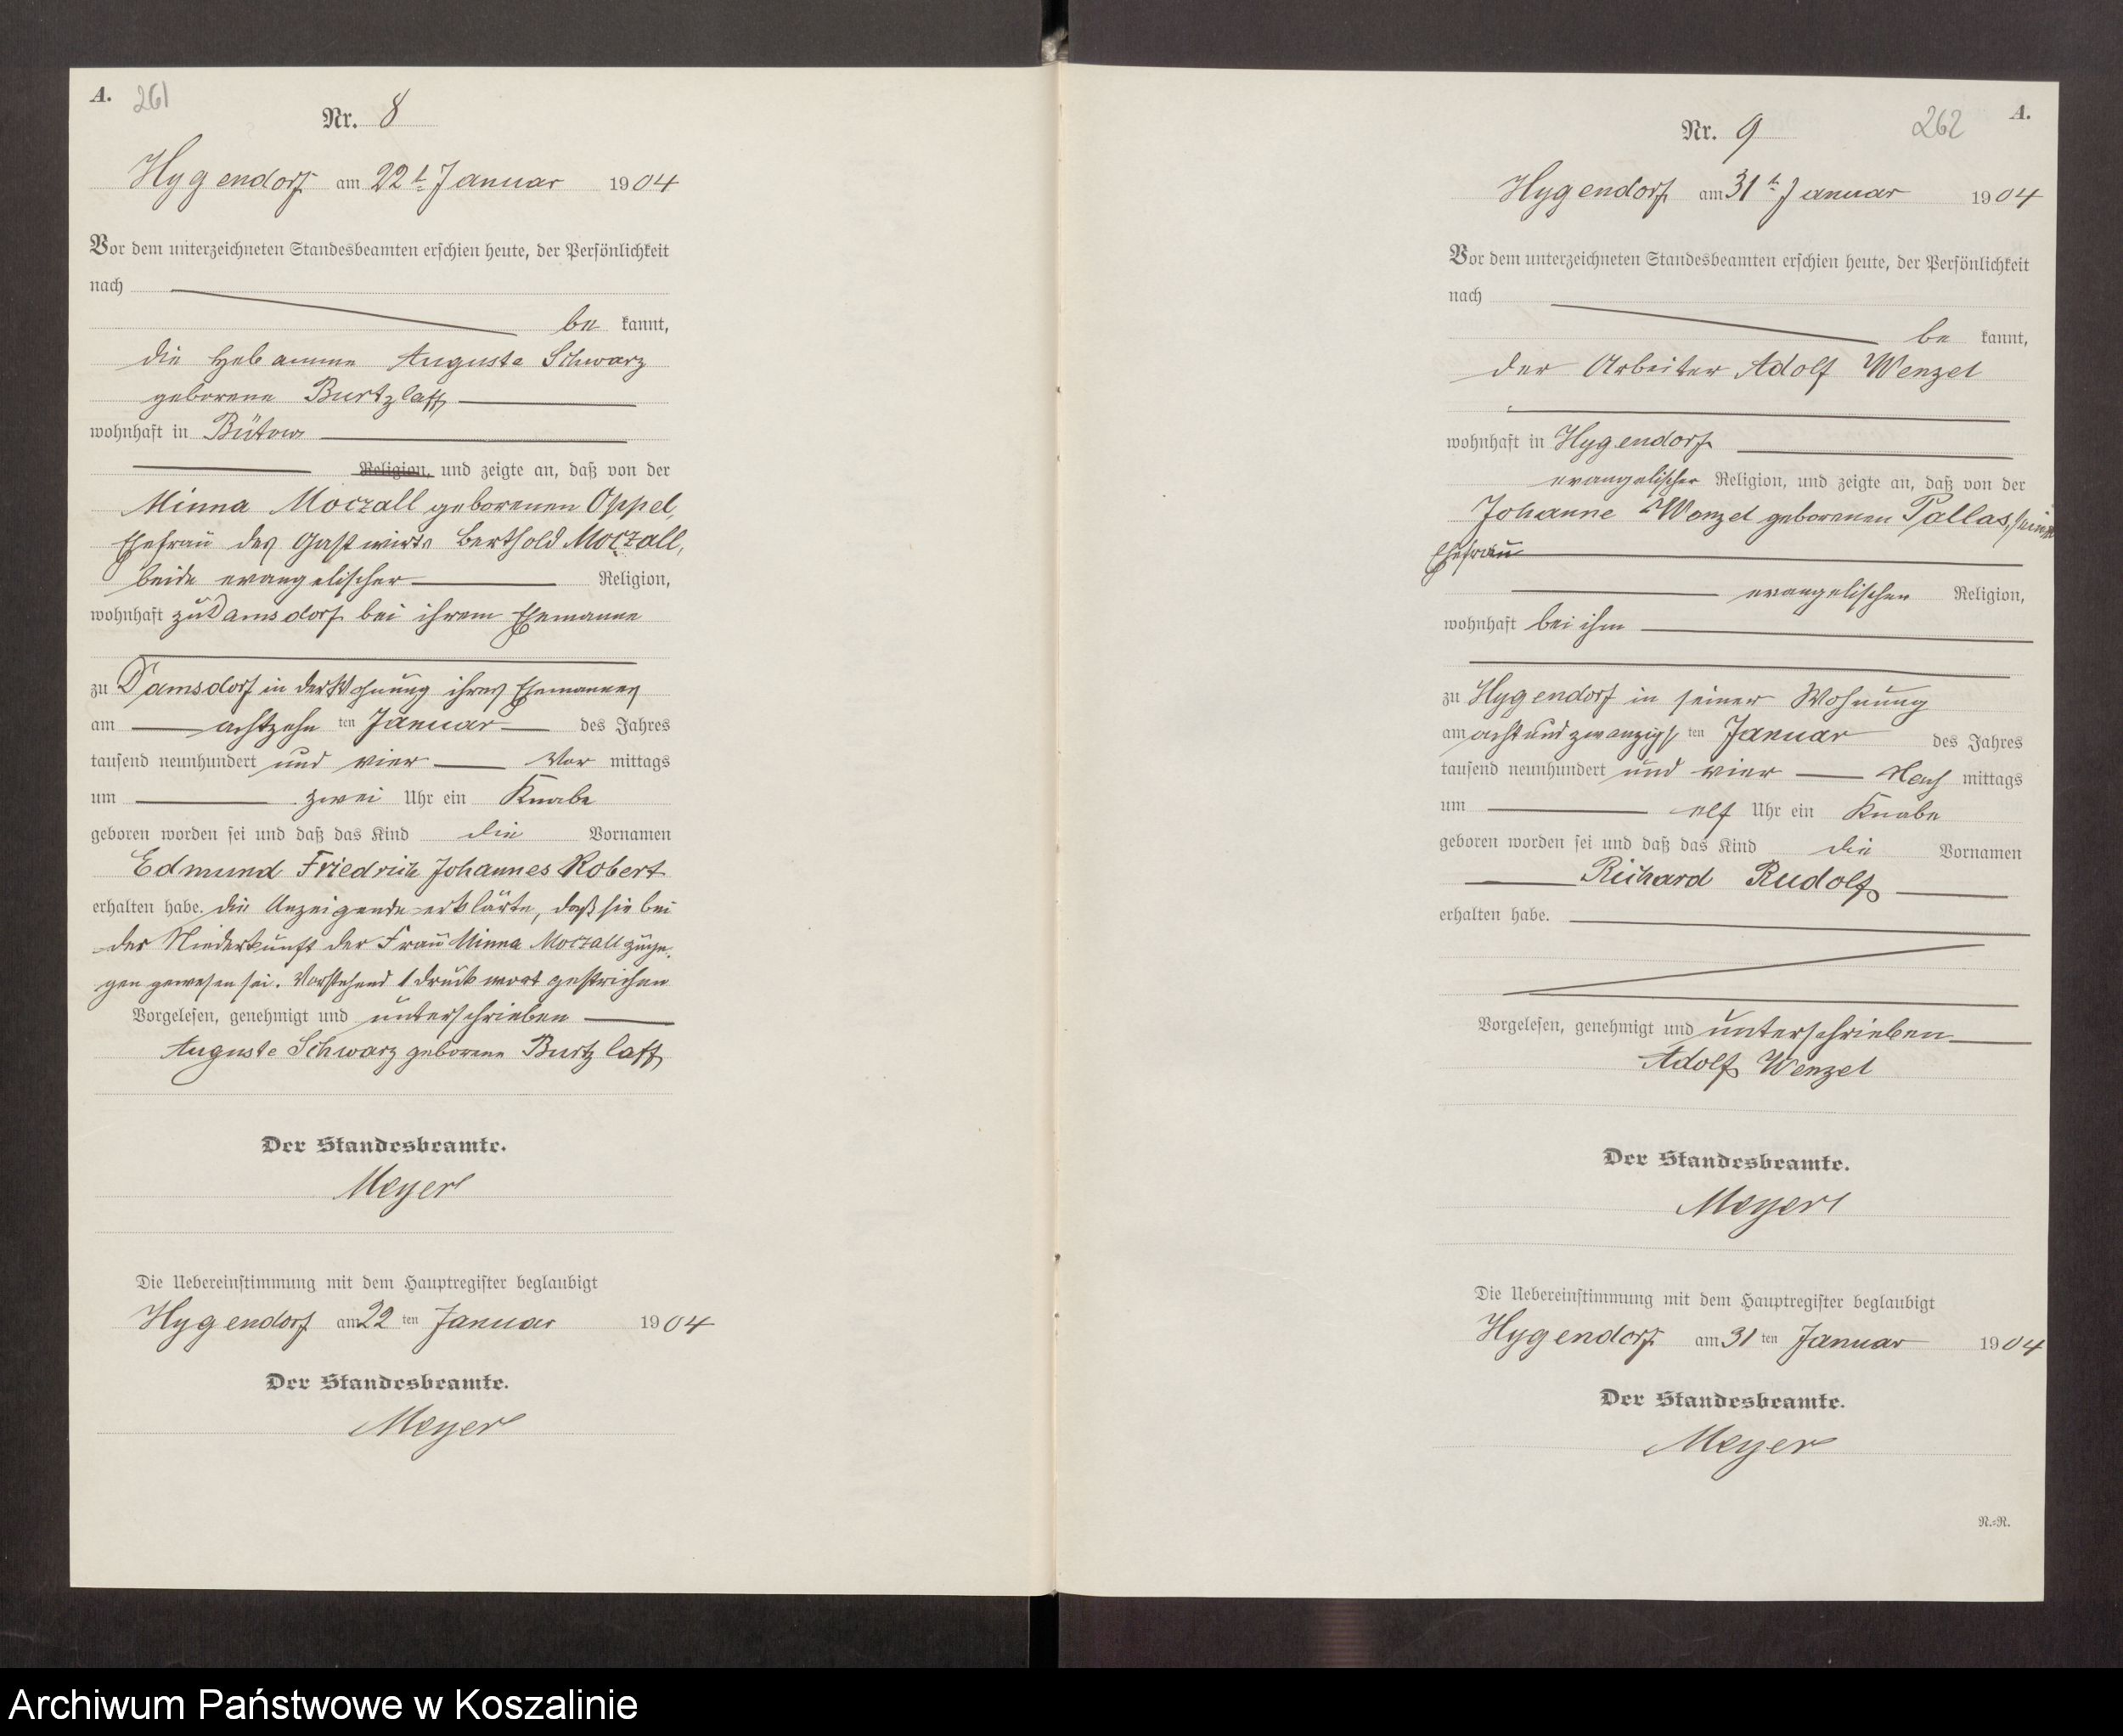 A.
261
Nr. 8
Hygendorf am 22t. Januar 1904
Vor dem unterzeichneten Standesbeamten erschien heute, der Persönlichkeit
nach
be kannt,
die Hebamme Auguste Schwarz
geborene Burtzlaff
wohnhaft in Bütow
Religion, und zeigte an, daß von der
Minna Moczall geborenen Oppel,
Ehefrau des Gastwirts Berthold Moczall,
beide evangelischer Religion,
wohnhaft zu Damsdorf bei ihrem Ehemanne
zu Damsdorf in der Wohnung ihres Ehemannes
am achtzehn ten Januar des Jahres
tausend neunhundert und vier Vor mittags
um zwei Uhr ein Knabe
geboren worden sei und daß das Kind die Vornamen
Edmund Friedrich Johannes Robert
erhalten habe. Die Anzeigende erklärte, daß sie bei
der Niederkunft der Frau Minna Moczall zuge-
gen gewesen sei. Vorstehend 1 Druckwort gestrichen
Vorgelesen, genehmigt und unterschrieben
Auguste Schwarz geborene Burtzlaff
Der Standesbeamte.
Meyer
Die Uebereinstimmung mit dem Hauptregister beglaubigt
Hygendorf am 22 ten Januar 1904
Der Standesbeamte.
Meyer
A.
262
Nr. 9
Hygendorf am 31t. Januar 1904
Vor dem unterzeichneten Standesbeamten erschien heute, der Persönlichkeit
nach
be kannt,
der Arbeiter Adolf Wenzel
wohnhaft in Hygendorf
evangelischer Religion, und zeigte an, daß von der
Johanne Wenzel geborenen Pallas, seiner
Ehefrau
evangelischen Religion,
wohnhaft bei ihm
zu Hygendorf in seiner Wohnung
am achtundzwanzigs ten Januar des Jahres
tausend neunhundert und vier Nach mittags
um elf Uhr ein Knabe
geboren worden sei und daß das Kind die Vornamen
Richard Rudolf
erhalten habe.
Vorgelesen, genehmigt und unterschrieben
Adolf Wenzel
Der Standesbeamte.
Meyer
Die Uebereinstimmung mit dem Hauptregister beglaubigt
Hygendorf am 31 ten Januar 1904
Der Standesbeamte.
Meyer
R.-R.
Archiwum Państwowe w Koszalinie